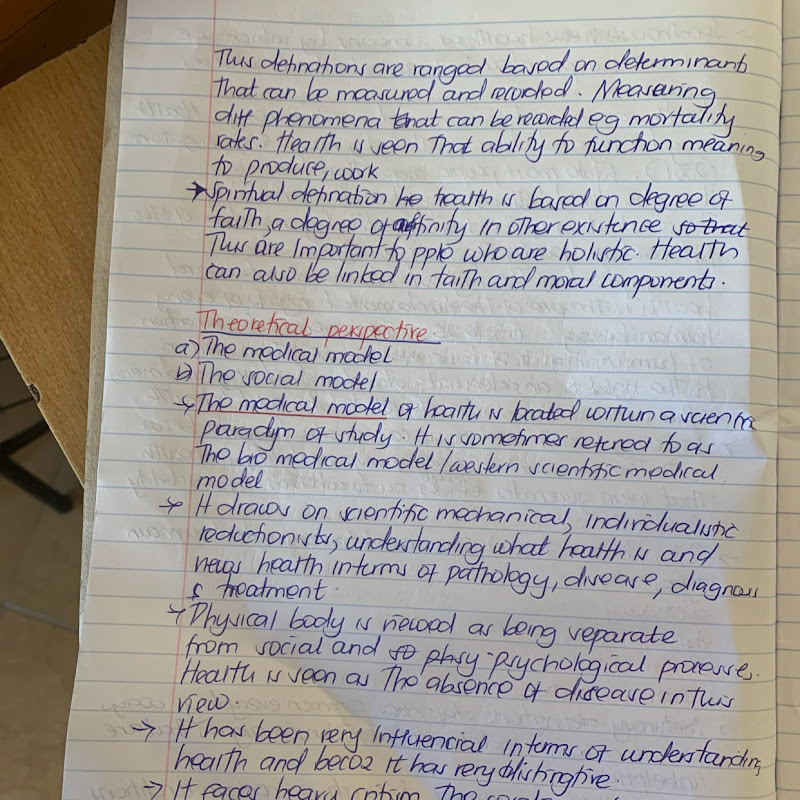 This definations are ranged based on determinants
that can be measured and recorded. Measuring
diff phenomena that can be recorded eg mortality
rates. Health is seen that ability to function meaning
to produce, work
→ Spiritual defination he health is based on degree of
faith, a degree of affinity in other existence so that
This are important to pple who are holistic. Health
can also be linked in faith and moral components.
Theoretical perspective
a) The medical model
b) The social model
→ The medical model of health is located within a scientific
paradym of study. It is sometimes refered to as
The bio medical model / western scientific medical
model
→ It draws on scientific mechanical, individualistic
reductionists, understanding what health is and
views health interms of pathology, disease, diagnosis
& treatment.
→ Physical body is viewed as being separate
from social and so phsy-psychological processe.
Health is seen as The absence of disease in this
view.
→ It has been very influencial interms of understanding
health and becoz it has very distingtive
→ It faces heavy critism The